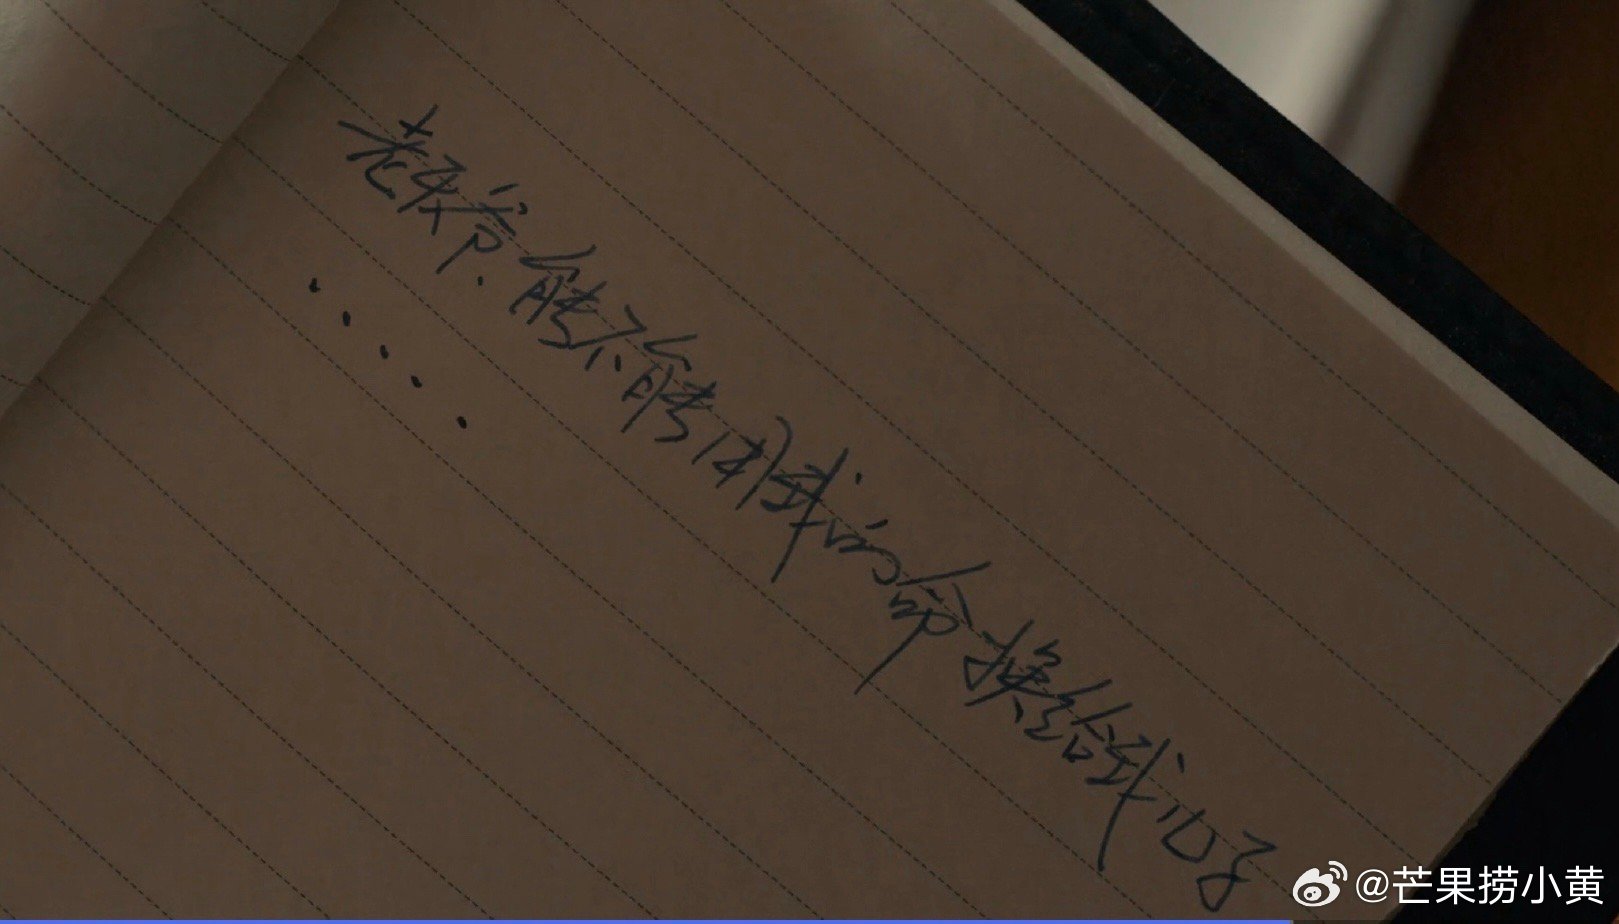 老天爷.能不能用我的命换给我儿子
.....
@芒果捞小黄